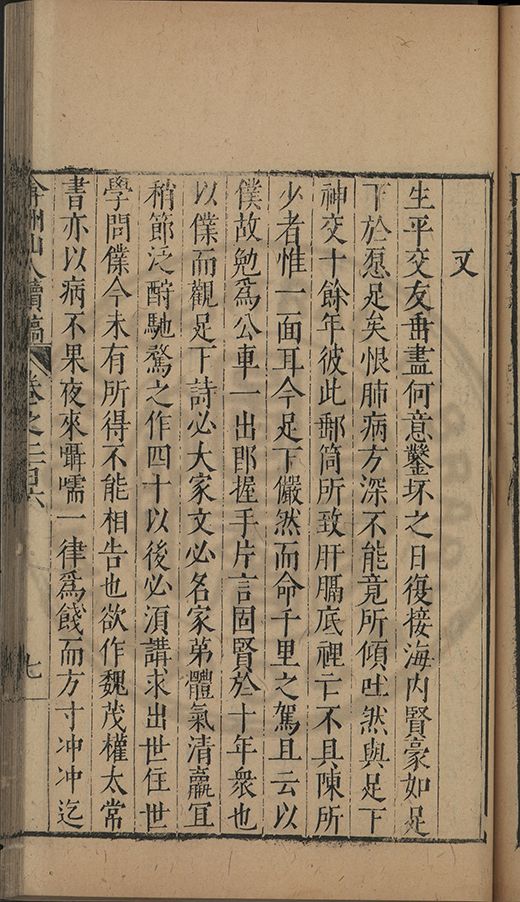 又
生平交友垂盡何意鑿坏之日復接海内賢豪如足
下於愿足矣恨肺病方深不能竟所傾吐然與足下
神交十餘年彼此郵筒所致肝膈底裡亡不具陳所
少者惟一面耳今足下儼然而命千里之駕且云以
僕故勉爲公車一出即握手片言固賢於十年衆也
以僕而觀足下詩必大家文必名家第體氣清羸冝
稍節泛酧馳騖之作四十以後必湏講求出世住世
學問僕今未有所得不能相告也欲作魏茂權太常
書亦以病不果夜來囁嚅一律爲餞而方寸冲冲迄
弇州山人續稿 卷之二百六 七